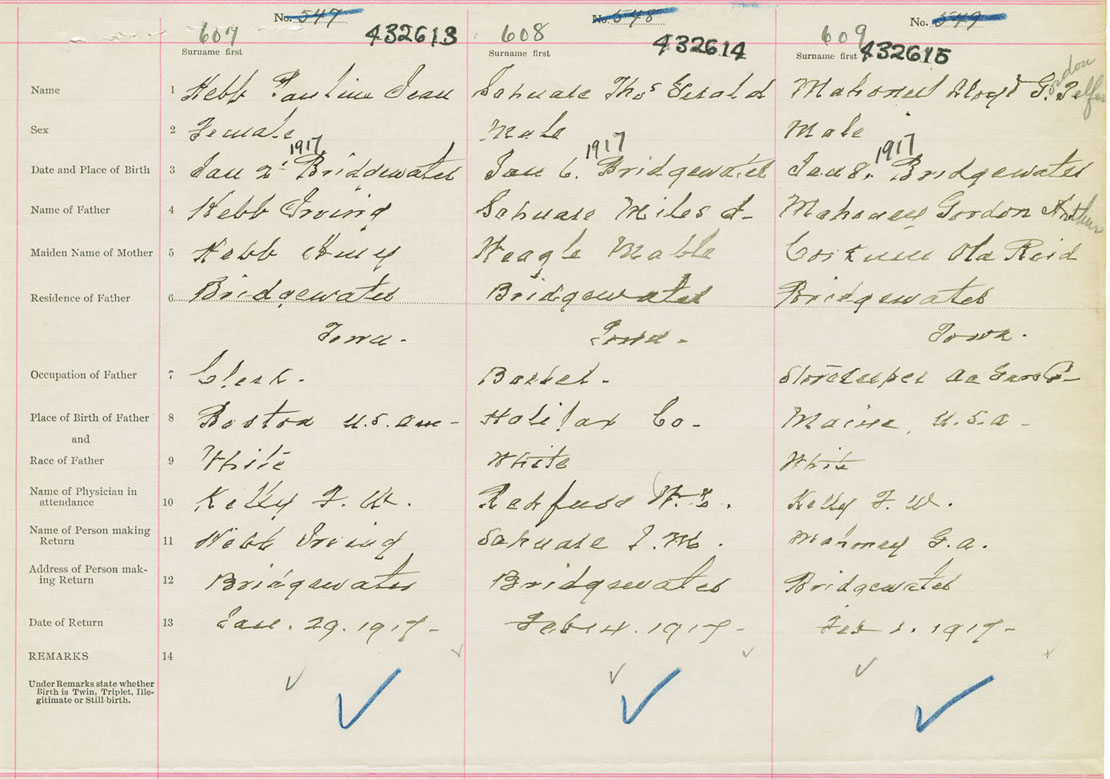 No. 547 No. 548 No. 549
607 432613 608 432614 609 432615
Surname first Surname first Surname first
Name 1 Hebb Pauline Jean Schnare Thos Gerald Mahoney Lloyd G. Telfer
ordon
Sex 2 Female Male Male
1917 1917 1917
Date and Place of Birth 3 Jan 2 Bridgewater Jan 6. Bridgewater Jan 8. Bridgewater
Name of Father 4 Hebb Irving Schnare Miles Mahoney Gordon Arthur
Maiden Name of Mother 5 Hebb Veagle Mable Corkum Reid
Residence of Father 6 Bridgewater Bridgewater Bridgewater
Town. Town. Town.
Occupation of Father 7 Clerk. Barber. Storekeeper
Place of Birth of Father 8 Boston U.S. Am- Halifax Co- Maine, U.S.A-
and
Race of Father 9 White White White
Name of Physician in
attendance 10 Kelly F. W. Rehfuss W. Kelly F. W.
Name of Person making
Return 11 Hebb Irving Schnare Mahoney G.A.
Address of Person mak-
ing Return 12 Bridgewater Bridgewater Bridgewater
Date of Return 13 Jan. 29. 1917- Feb 4. 1917- Feb 1. 1917-
REMARKS 14
Under Remarks state whether
Birth is Twin, Triplet, Ille-
gitimate or Still-birth.